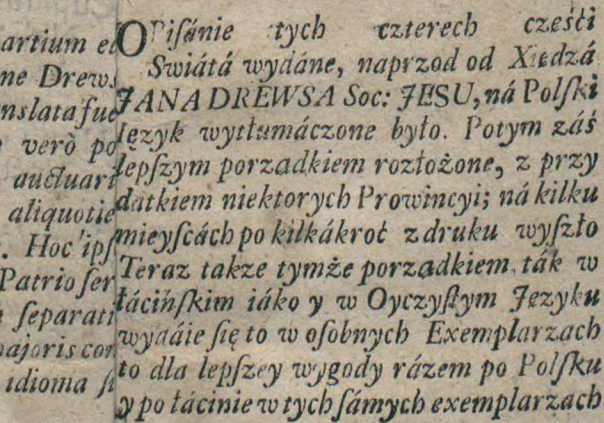 artium et
ne Drews
nslata fue
verò po
auctuari
aliquotie
. Hoc ipſ
Patrio ſer
ſeparati
majoris con
idioma ſi
OPiſánie tych czterech cześći
Swiátá wydáne, naprzod od Xiedzá
JANA DREWSA Soc: JESU, ná Polſki
Język wytłumáczone było. Potym záś
lepſzym porzadkiem rozłożone, z przy
datkiem niektorych Prowincyi; ná kilku
mieyſcách po kilkákroć z druku wyſzło
Teraz takze tymże porzadkiem ták w
łácińſkim iáko y w Oyczyſtym Jezyku
wydáie ſię to w oſobnych Exemplarzach
to dla lepſzey wygody rázem po Polſku
y po łácinie w tych ſámych exemplarzach